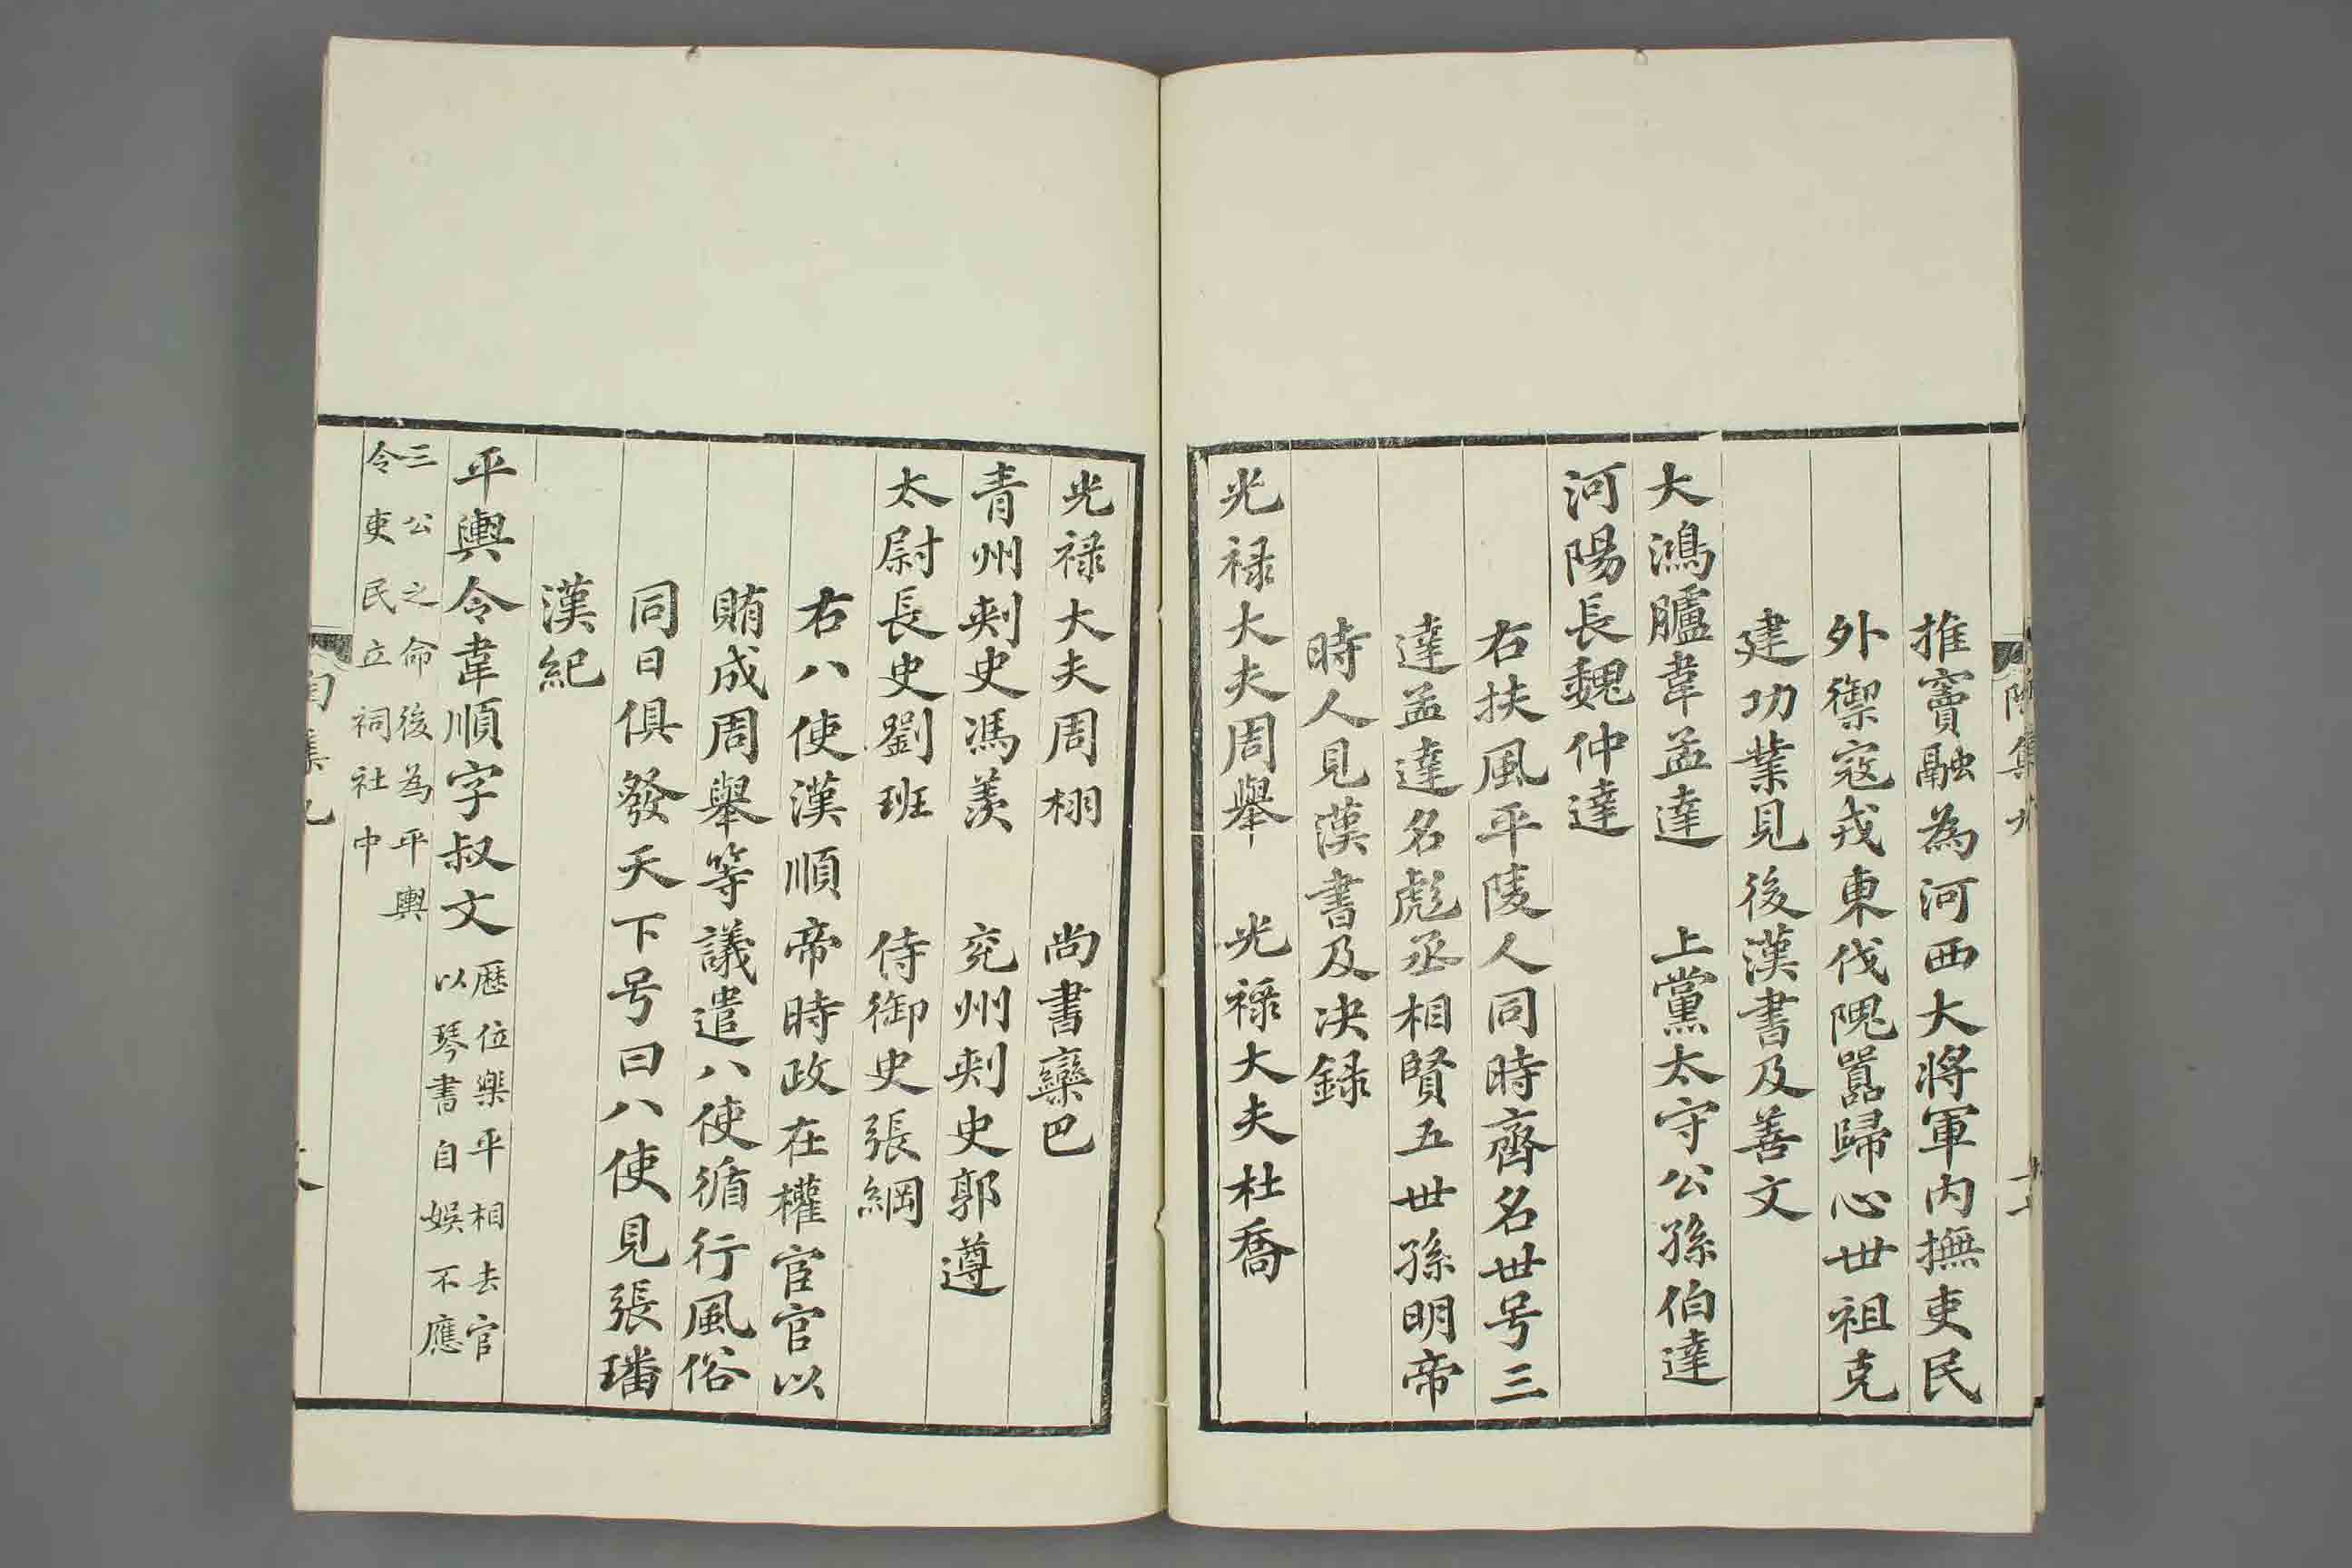 推竇融為河西大將軍內撫吏民
外禦寇戎東伐隗囂歸心世祖克
建功業見後漢書及善文
大鴻臚韋孟達　上黨太守公孫伯達
河陽長魏仲達
右扶風平陵人同時齊名世号三
達孟達名彪丞相賢五世孫明帝
時人見漢書及決録
光祿大夫周舉　光祿大夫杜喬
光祿大夫周栩　尚書欒巴
青州刺史馮羨　兖州刺史郭遵
太尉長史劉班　侍御史張綱
右八使漢順帝時政在權宦官以
賄成周舉等議遣八使循行風俗
同日俱發天下号曰八使見張璠
漢紀
平輿令韋順字叔文
歷位樂平相去官
以琴書自娛不應
三公之命後為平輿
令吏民立祠社中